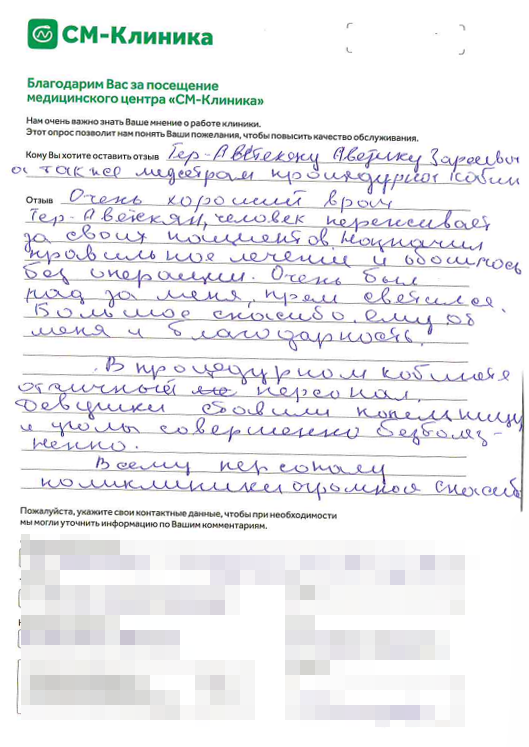 СМ-Клиника
Благодарим Вас за посещение
медицинского центра «СМ-Клиника»
Нам очень важно знать Ваше мнение о работе клиники.
Этот опрос позволит нам понять Ваши пожелания, чтобы повысить качество обслуживания.
Кому Вы хотите оставить отзыв Тер-Аветекяну Аветику Зареевичу
а также медсестрам процедурног кабин
Отзыв Очень хороший врач
Тер-Аветекян, человек переживает
за своих пациентов. Назначил
правильное лечение и обошлось
без операции. Очень был
рад за меня, прям светился.
Большое спасибо ему от
меня и благодарность.
В процедурном кабинете
отличный персонал.
Девушки ставили капельницу
и уколы совершенно безболез-
ненно.
Всему персоналу
поликлиники огромное спасибо
Пожалуйста, укажите свои контактные данные, чтобы при необходимости
мы могли уточнить информацию по Вашим комментариям.